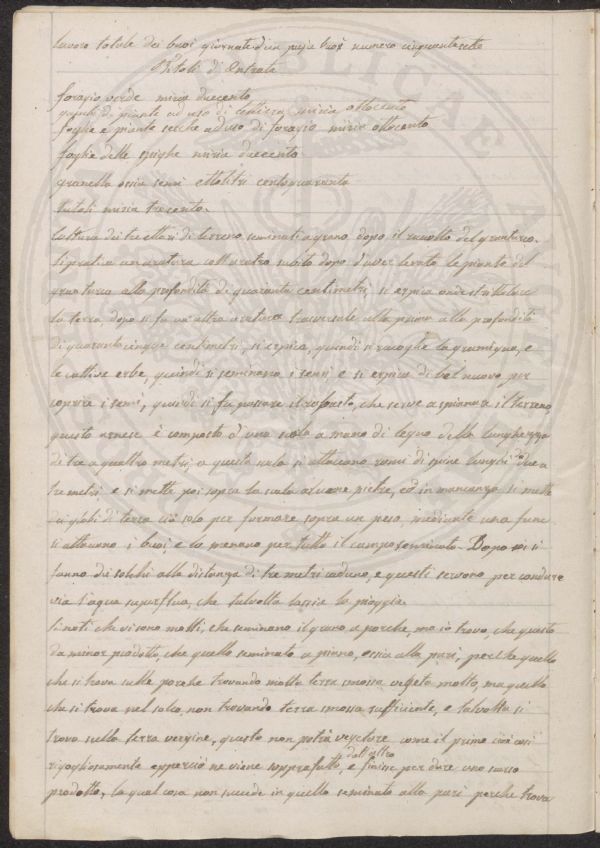 lavoro totale dei buoi giornate d'un pajo buoi numero cinquantasette
Titoli di Entrata
foragio verde miria duecento
gambi di piante ad uso di lettiera miria ottocento
foglie e piante secche ad uso di foragio miria ottocento
foglie delle spighe miria duecento
granella ossia semi ettolitri centoquaranta
tutoli miria trecento.
Coltura dei tre ettari di terreno seminati a grano dopo il raccolto del granturco.
Si pratica un'aratura coll'aratro subito dopo d'aver levato le piante del
granturco alla profondità di quaranta centimetri, si erpica onde stritolare
la terra, dopo si fa un'altra aratura trasversale alla prima alla profondità
di quaranta cinque centimetri, si erpica, quindi si raccoglie la gramigna, e
le cattive erbe, quindi si seminano i semi e si erpica di bel nuovo per
coprire i semi, quindi si fa passare il , che serve a spianare il terreno
questo arnese è composto d'una scala a mano di legno della lunghezza
di tre a quattro metri, a questa scala si attaccano rami di spine lunghi due a
tre metri e si mette poi sopra la scala alcune pietre, ed in mancanza si mette
dei globi di terra ciò solo per formare sopra un peso, mediante una fune
si attaccano i buoi e lo menano per tutto il campo seminato. Dopo poi si
fanno dei solchi alla distanza di tre metri caduno, e questi servono per condurre
via l'aqua superflua, che talvolta lascia la pioggia.
Si noti che vi sono molti, che seminano il grano a porche, ma io trovo, che questo
da minor prodotto, che quello seminato a piano, ossia alla pari, perchè quello
che si trova sulle porche trovando molta terra smossa vegeta molto, ma quello
che si trova nel solco, non trovando terra smossa sufficiente, e talvolta si
trova sulla terra vergine, questo non potrà vegetare come il primo così
rigogliosamente epperciò ne viene soprafatto dall'altro, e finisce per dare uno scarso
prodotto, la qual cosa non succede in quello seminato alla pari perchè trova